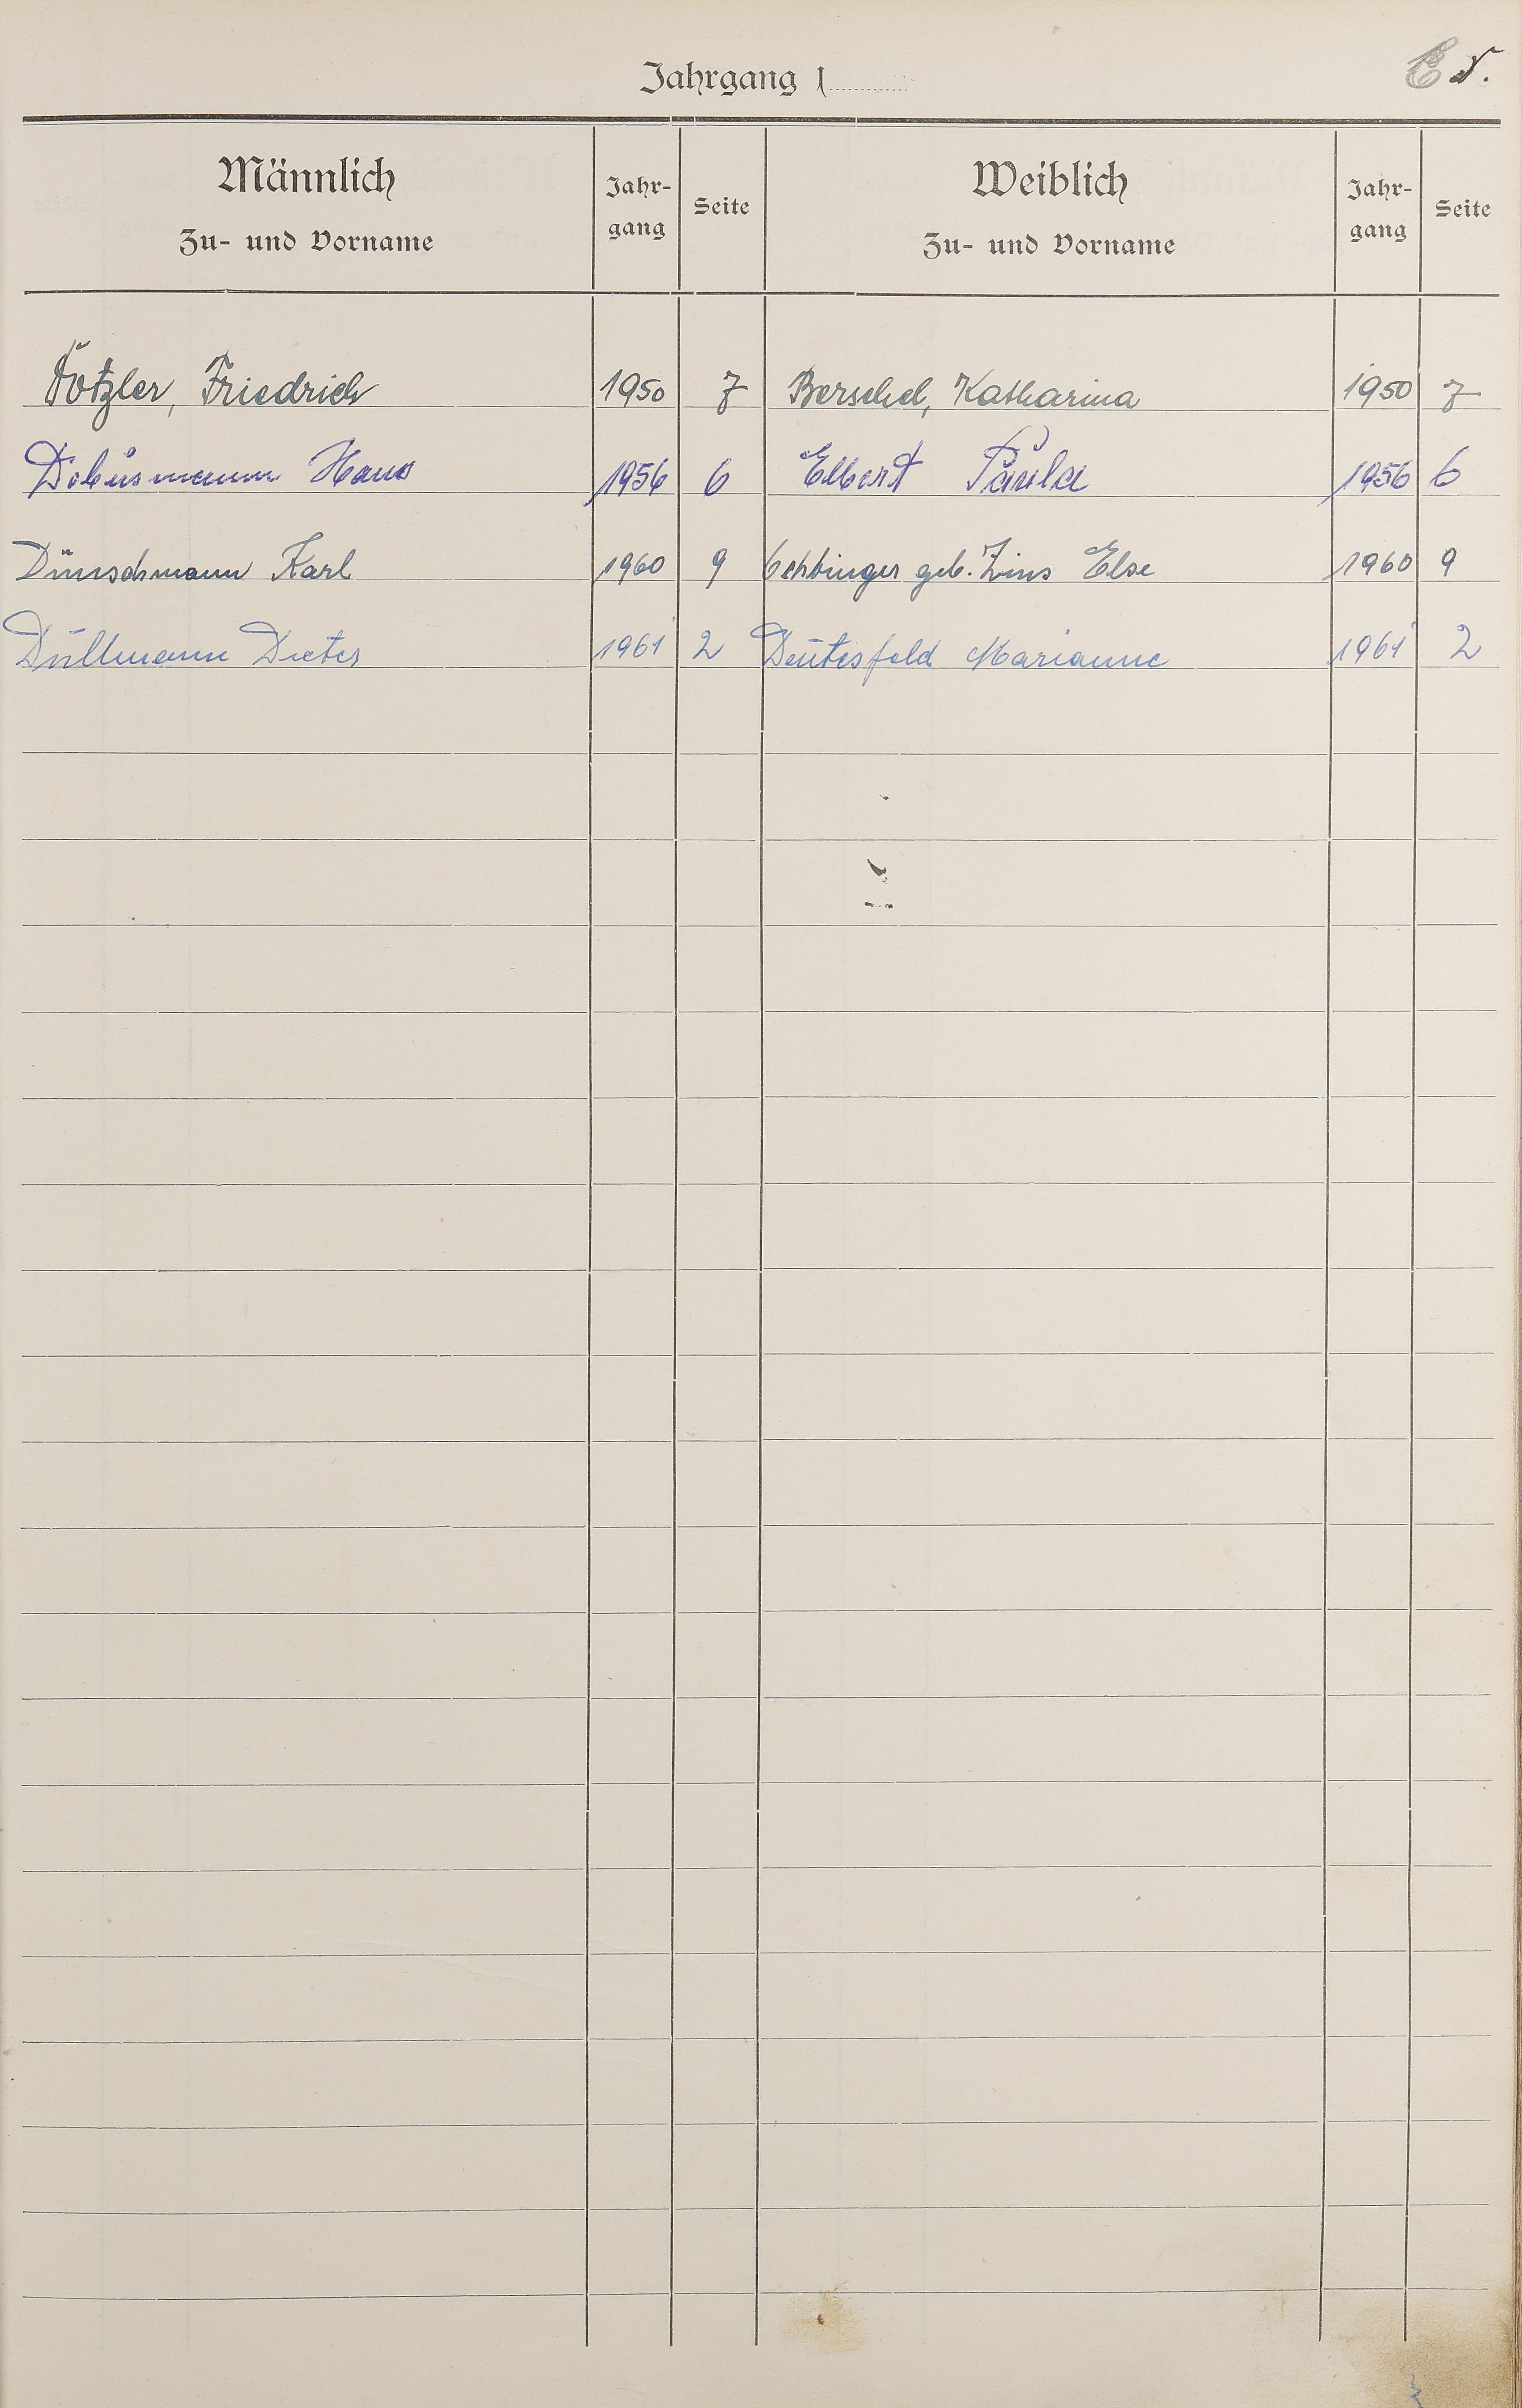 D.
Jahrgang 1
Männlich Jahr- Seite Weiblich Jahr- Seite
Zu- und Vorname gang Zu- und Vorname gang
Friedrich 1950 7 Berschel, Katharina 1950 7
Hans 1956 6 Elbert Paula 1956 6
Dünschmann Karl 1960 9 geb. Zins Else 1960 9
Düllmann Dieter 1961 2 Deutesfeld Marianne 1961 2